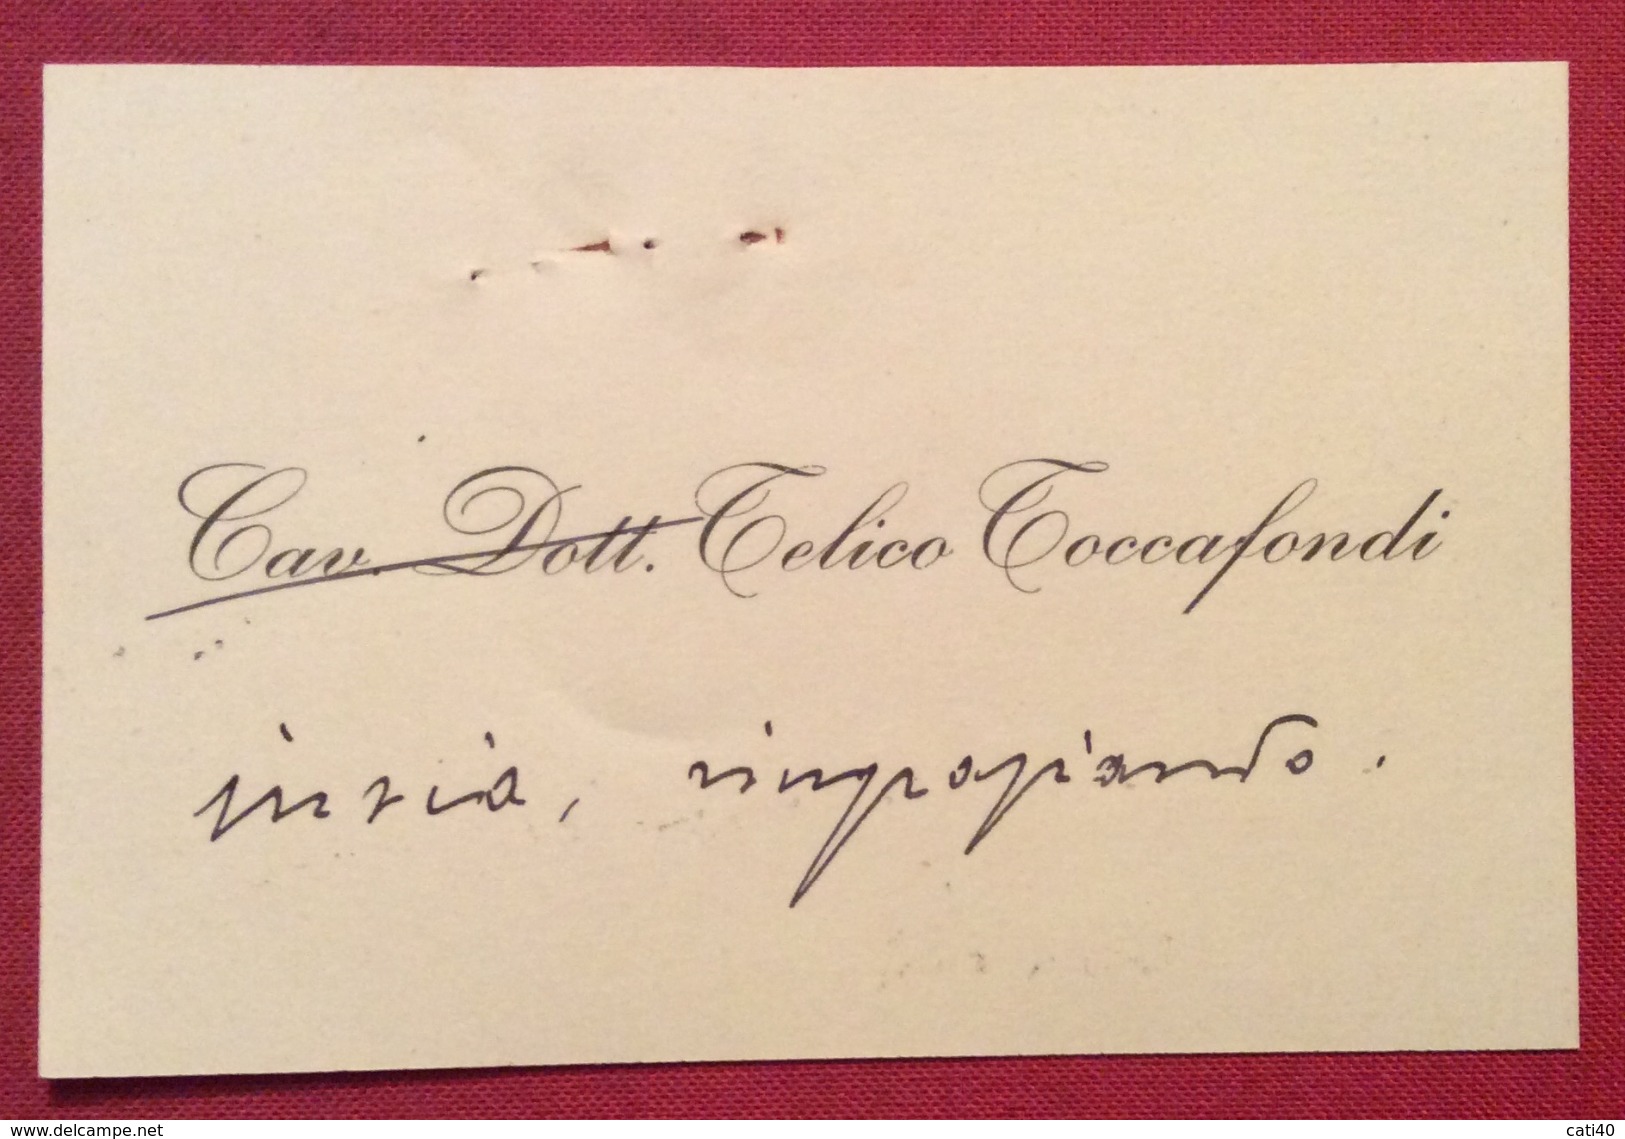 Cav. Dott. Telico Toccafondi
invia, ringraziando.
www.delcampe.net
cati40